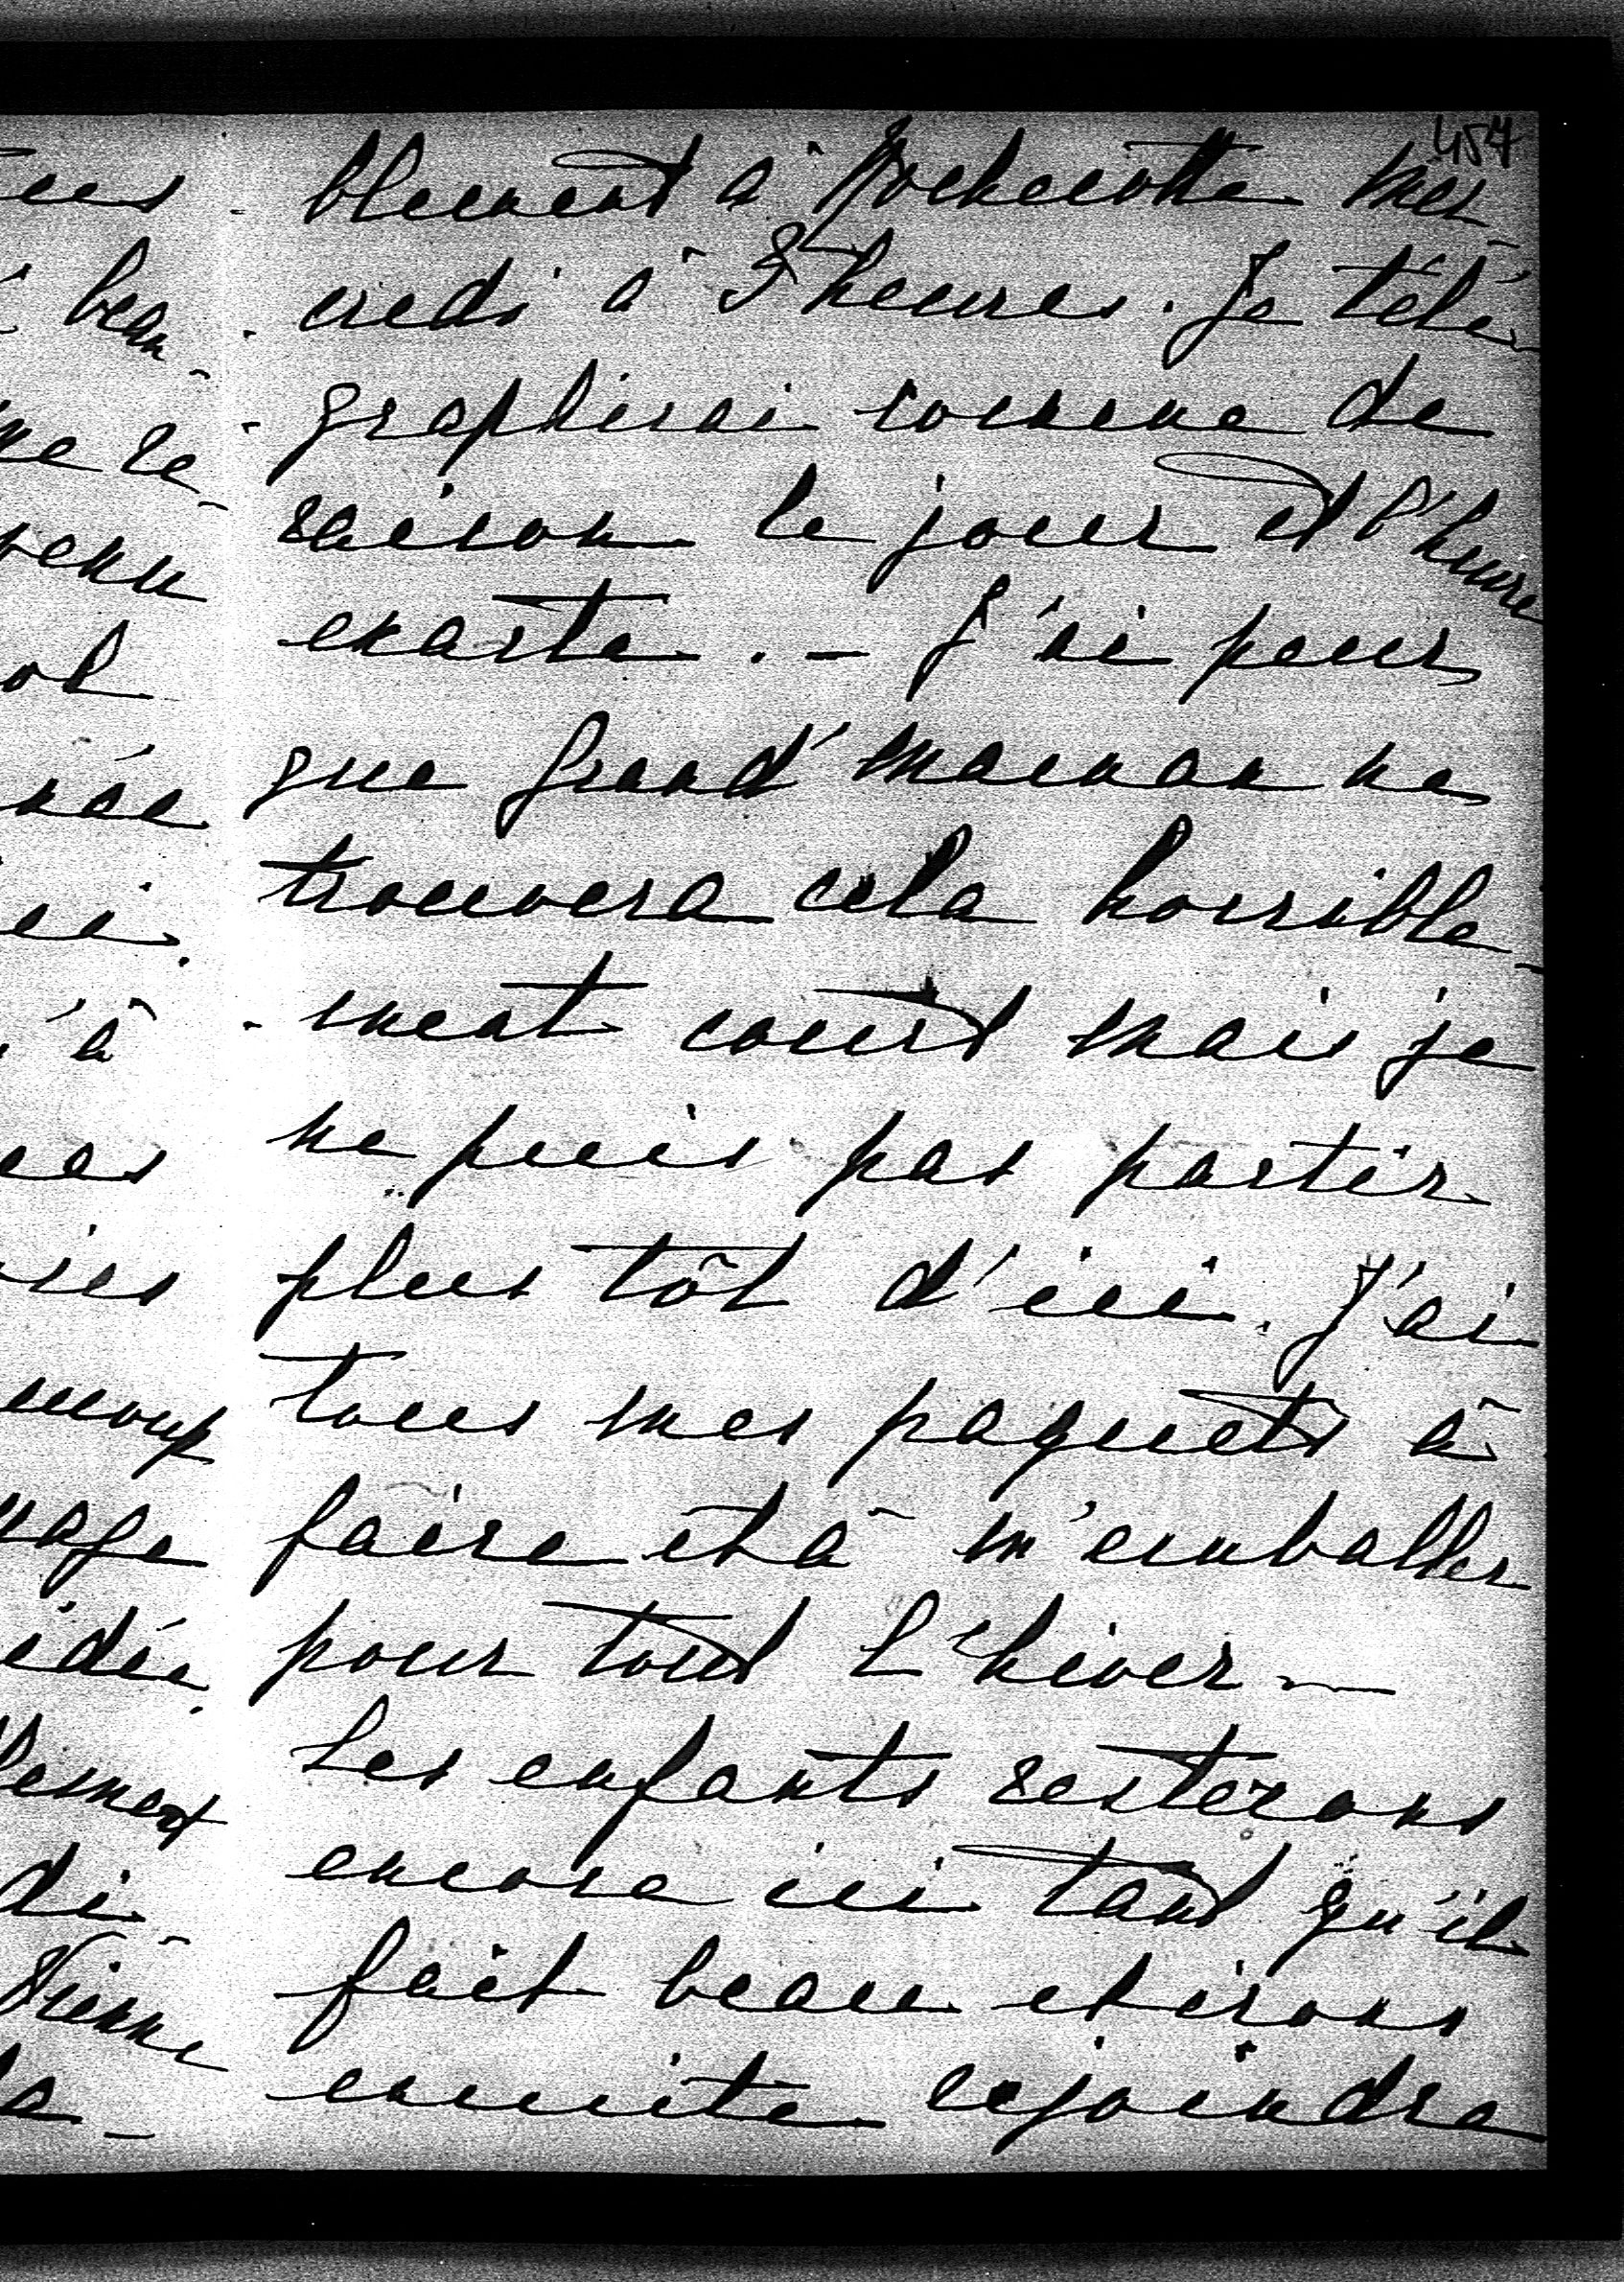 457
blement à Rochecotte mer-
credi à 5 heures. Je télé-
graphierai comme de
raison le jour et l'heure
exacte. — J'ai peur
que Grand'maman ne
trouvera cela horrible-
ment court mais je
ne puis pas partir
plus tôt d'ici. J'ai
tous mes paquets à
faire et à m'emballer
pour tout l'hiver —
Les enfants resterons
encore ici tant qu'il
fait beau et irons
ensuite rejoindre